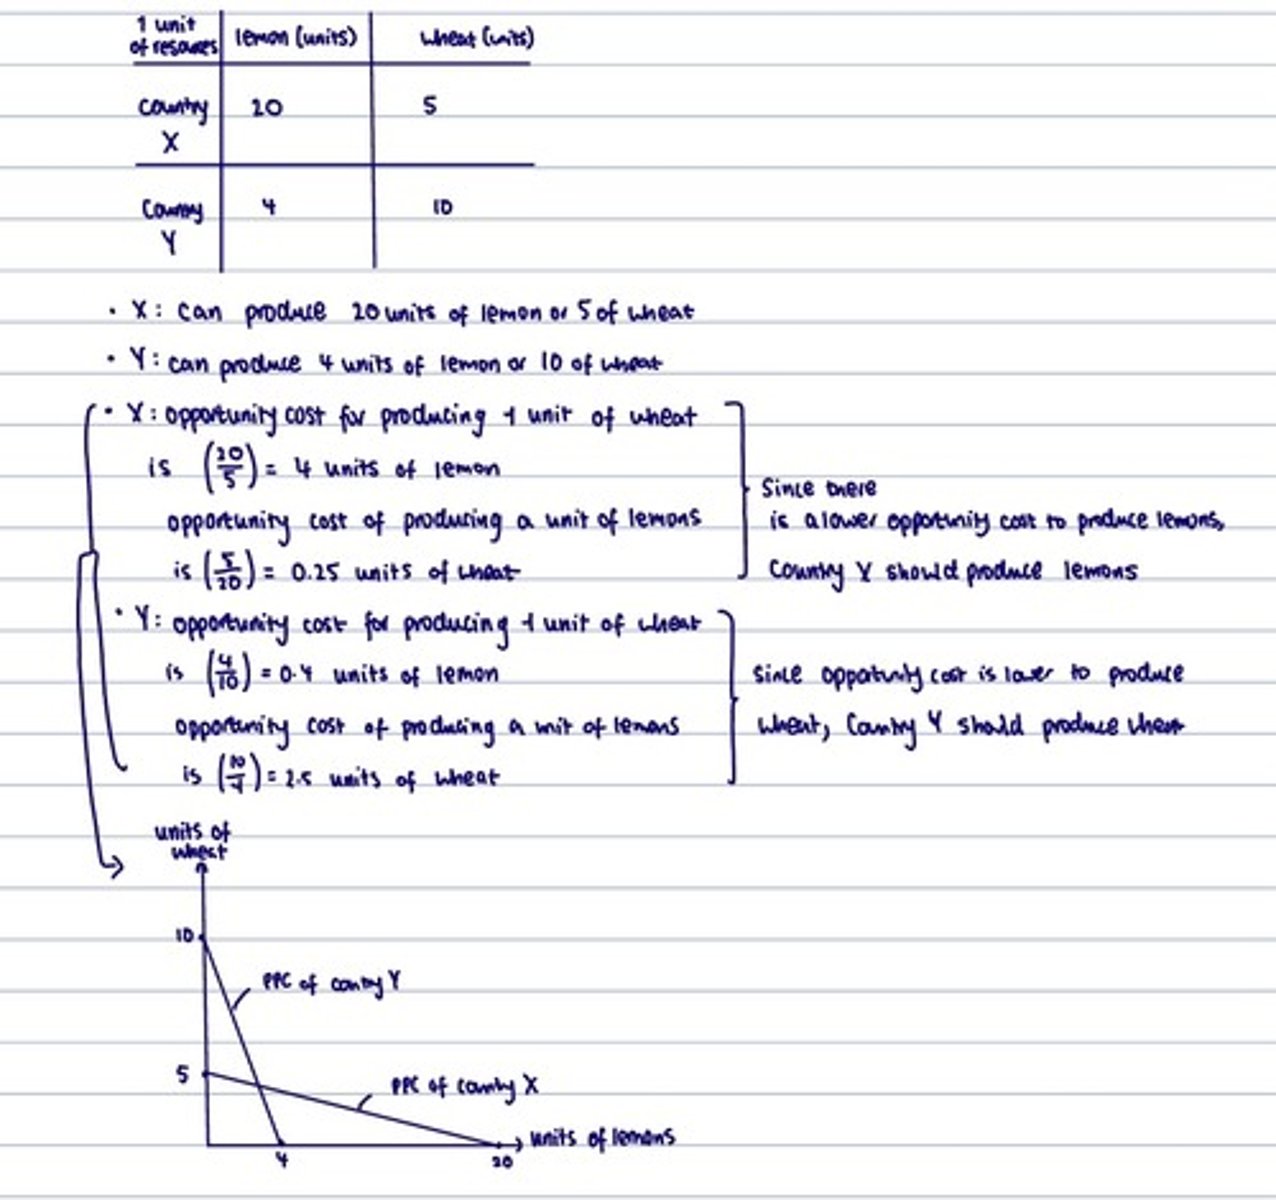 1 unit of resources lemon (units) wheat (units)
Country X 20 5
Country Y 4 10
• X: can produce 20 units of lemon or 5 of wheat
• Y: can produce 4 units of lemon or 10 of wheat
• X: opportunity cost for producing 1 unit of wheat
is (20/5) = 4 units of lemon
opportunity cost of producing a unit of lemons
is (5/20) = 0.25 units of wheat
Since there
is a lower opportunity cost to produce lemons,
Country X should produce lemons
• Y: opportunity cost for producing 1 unit of wheat
is (4/10) = 0.4 units of lemon
opportunity cost of producing a unit of lemons
is (10/4) = 2.5 units of wheat
Since opportunity cost is lower to produce
wheat, Country Y should produce wheat
units of
wheat
10
PPC of country Y
5
PPC of country X
units of lemons
4
20